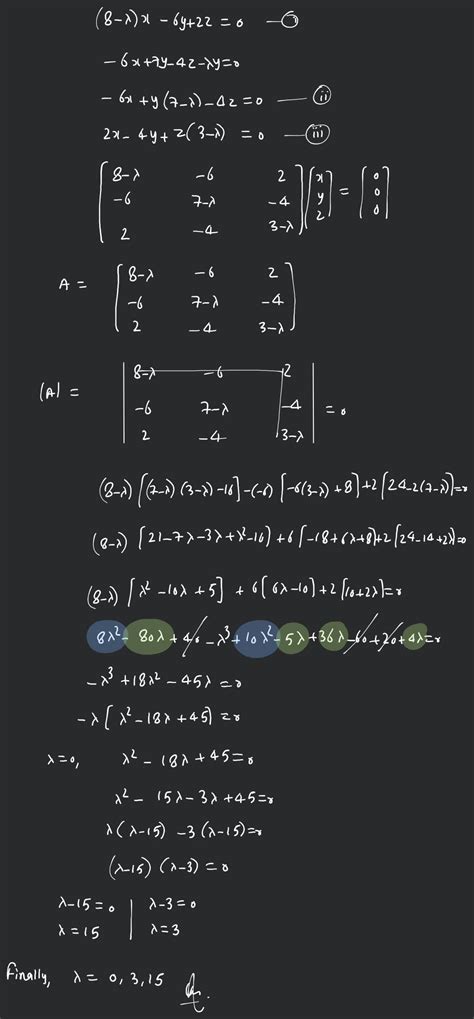 (8-λ)x - 6y+2z = 0 — (i)
-6x+7y-4z-λy=0
-6x+y(7-λ)-4z=0 — (ii)
2x-4y+z(3-λ) = 0 — (iii)
[8-λ -6 2] [x] = [0]
[-6 7-λ -4] [y] [0]
[2 -4 3-λ] [z] [0]
A = [8-λ -6 2]
[-6 7-λ -4]
[2 -4 3-λ]
|A| = |8-λ -6 2|
|-6 7-λ -4| = 0
|2 -4 3-λ|
(8-λ)[(7-λ)(3-λ)-16]-(-6)[-6(3-λ)+8]+2[24-2(7-λ)]=0
(8-λ)[21-7λ-3λ+λ²-16]+6[-18+6λ+8]+2[24-14+2λ]=0
(8-λ)[λ²-10λ+5]+6[6λ-10]+2[10+2λ]=0
8λ²-80λ+40-λ³+10λ²-5λ+36λ-60+20+4λ=0
-λ³+18λ²-45λ=0
-λ[λ²-18λ+45]=0
λ=0, λ²-18λ+45=0
λ²-15λ-3λ+45=0
λ(λ-15)-3(λ-15)=0
(λ-15)(λ-3)=0
λ-15=0 | λ-3=0
λ=15 | λ=3
Finally, λ = 0,3,15